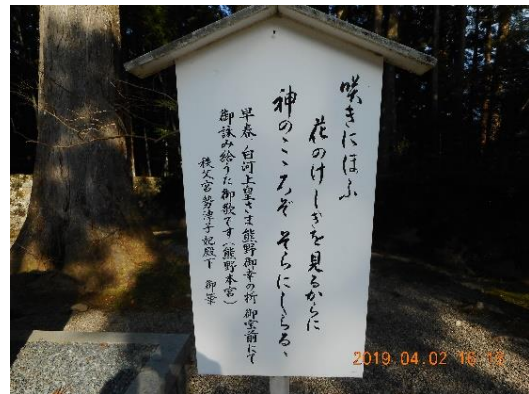 咲きにほふ
花のけしきを見るからに
神のこころぞ そらにしらるゝ
早春 白河上皇さま熊野御幸の折 御宝前にて
御詠み給うた御歌です(熊野本宮)
秩父宮勢津子妃殿下 御筆
2019.04.02